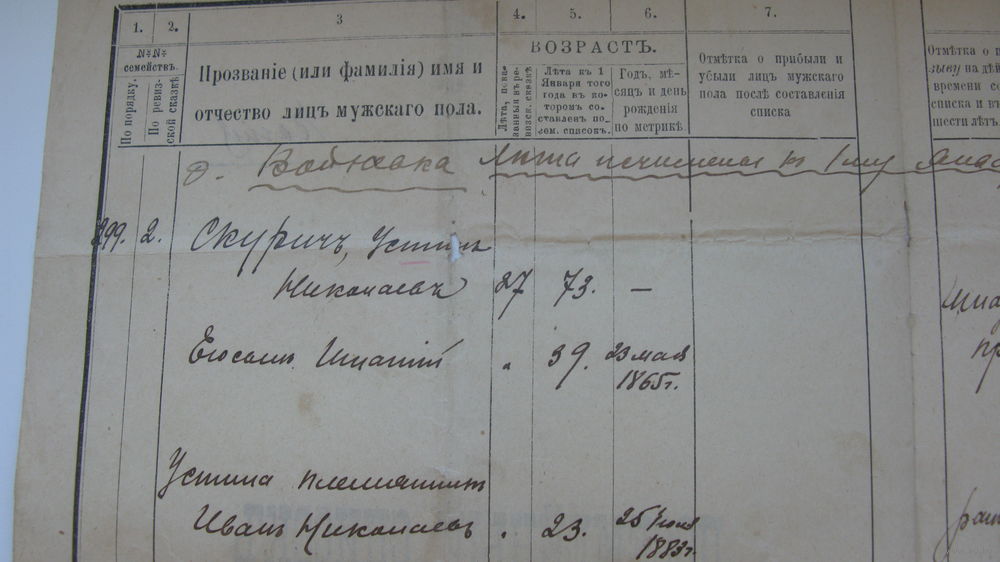 1. 2. 3 4. 5. 6. 7.
№№ семействъ.
По порядку.
По ревизской сказкѣ
Прозваніе (или фамилія) имя и
отчество лицъ мужскаго пола.
ВОЗРАСТЪ.
Лѣта, пока-
занныя въ ре-
визск. сказкѣ
Лѣта къ 1
Января того
года въ ко-
торомъ со-
ставленъ по-
сем. списокъ.
Годъ, мѣ-
сяцъ и день
рожденія
по метрикѣ.
Отмѣтка о прибыли и
убыли лицъ мужского
пола послѣ составленія
списка
Отмѣтка о
зыву на дѣй
времени со
списка и въ
шести лѣтъ
д. Лѣта исчислены къ 1му
299. 2. Скуричъ, Устинъ
Николаевъ 27 73. —
Его сынъ Игнатій „ 39. 23 мая
1865г.
Устина племянникъ
Иванъ Николаевъ „ 23. 25
1883г.